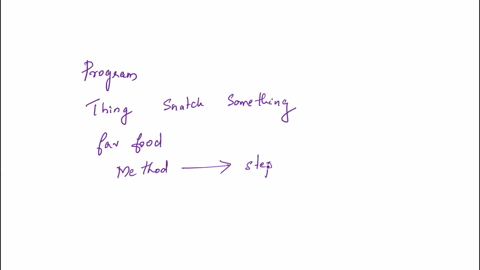 Program
Thing Snatch Something
far food
Method → step